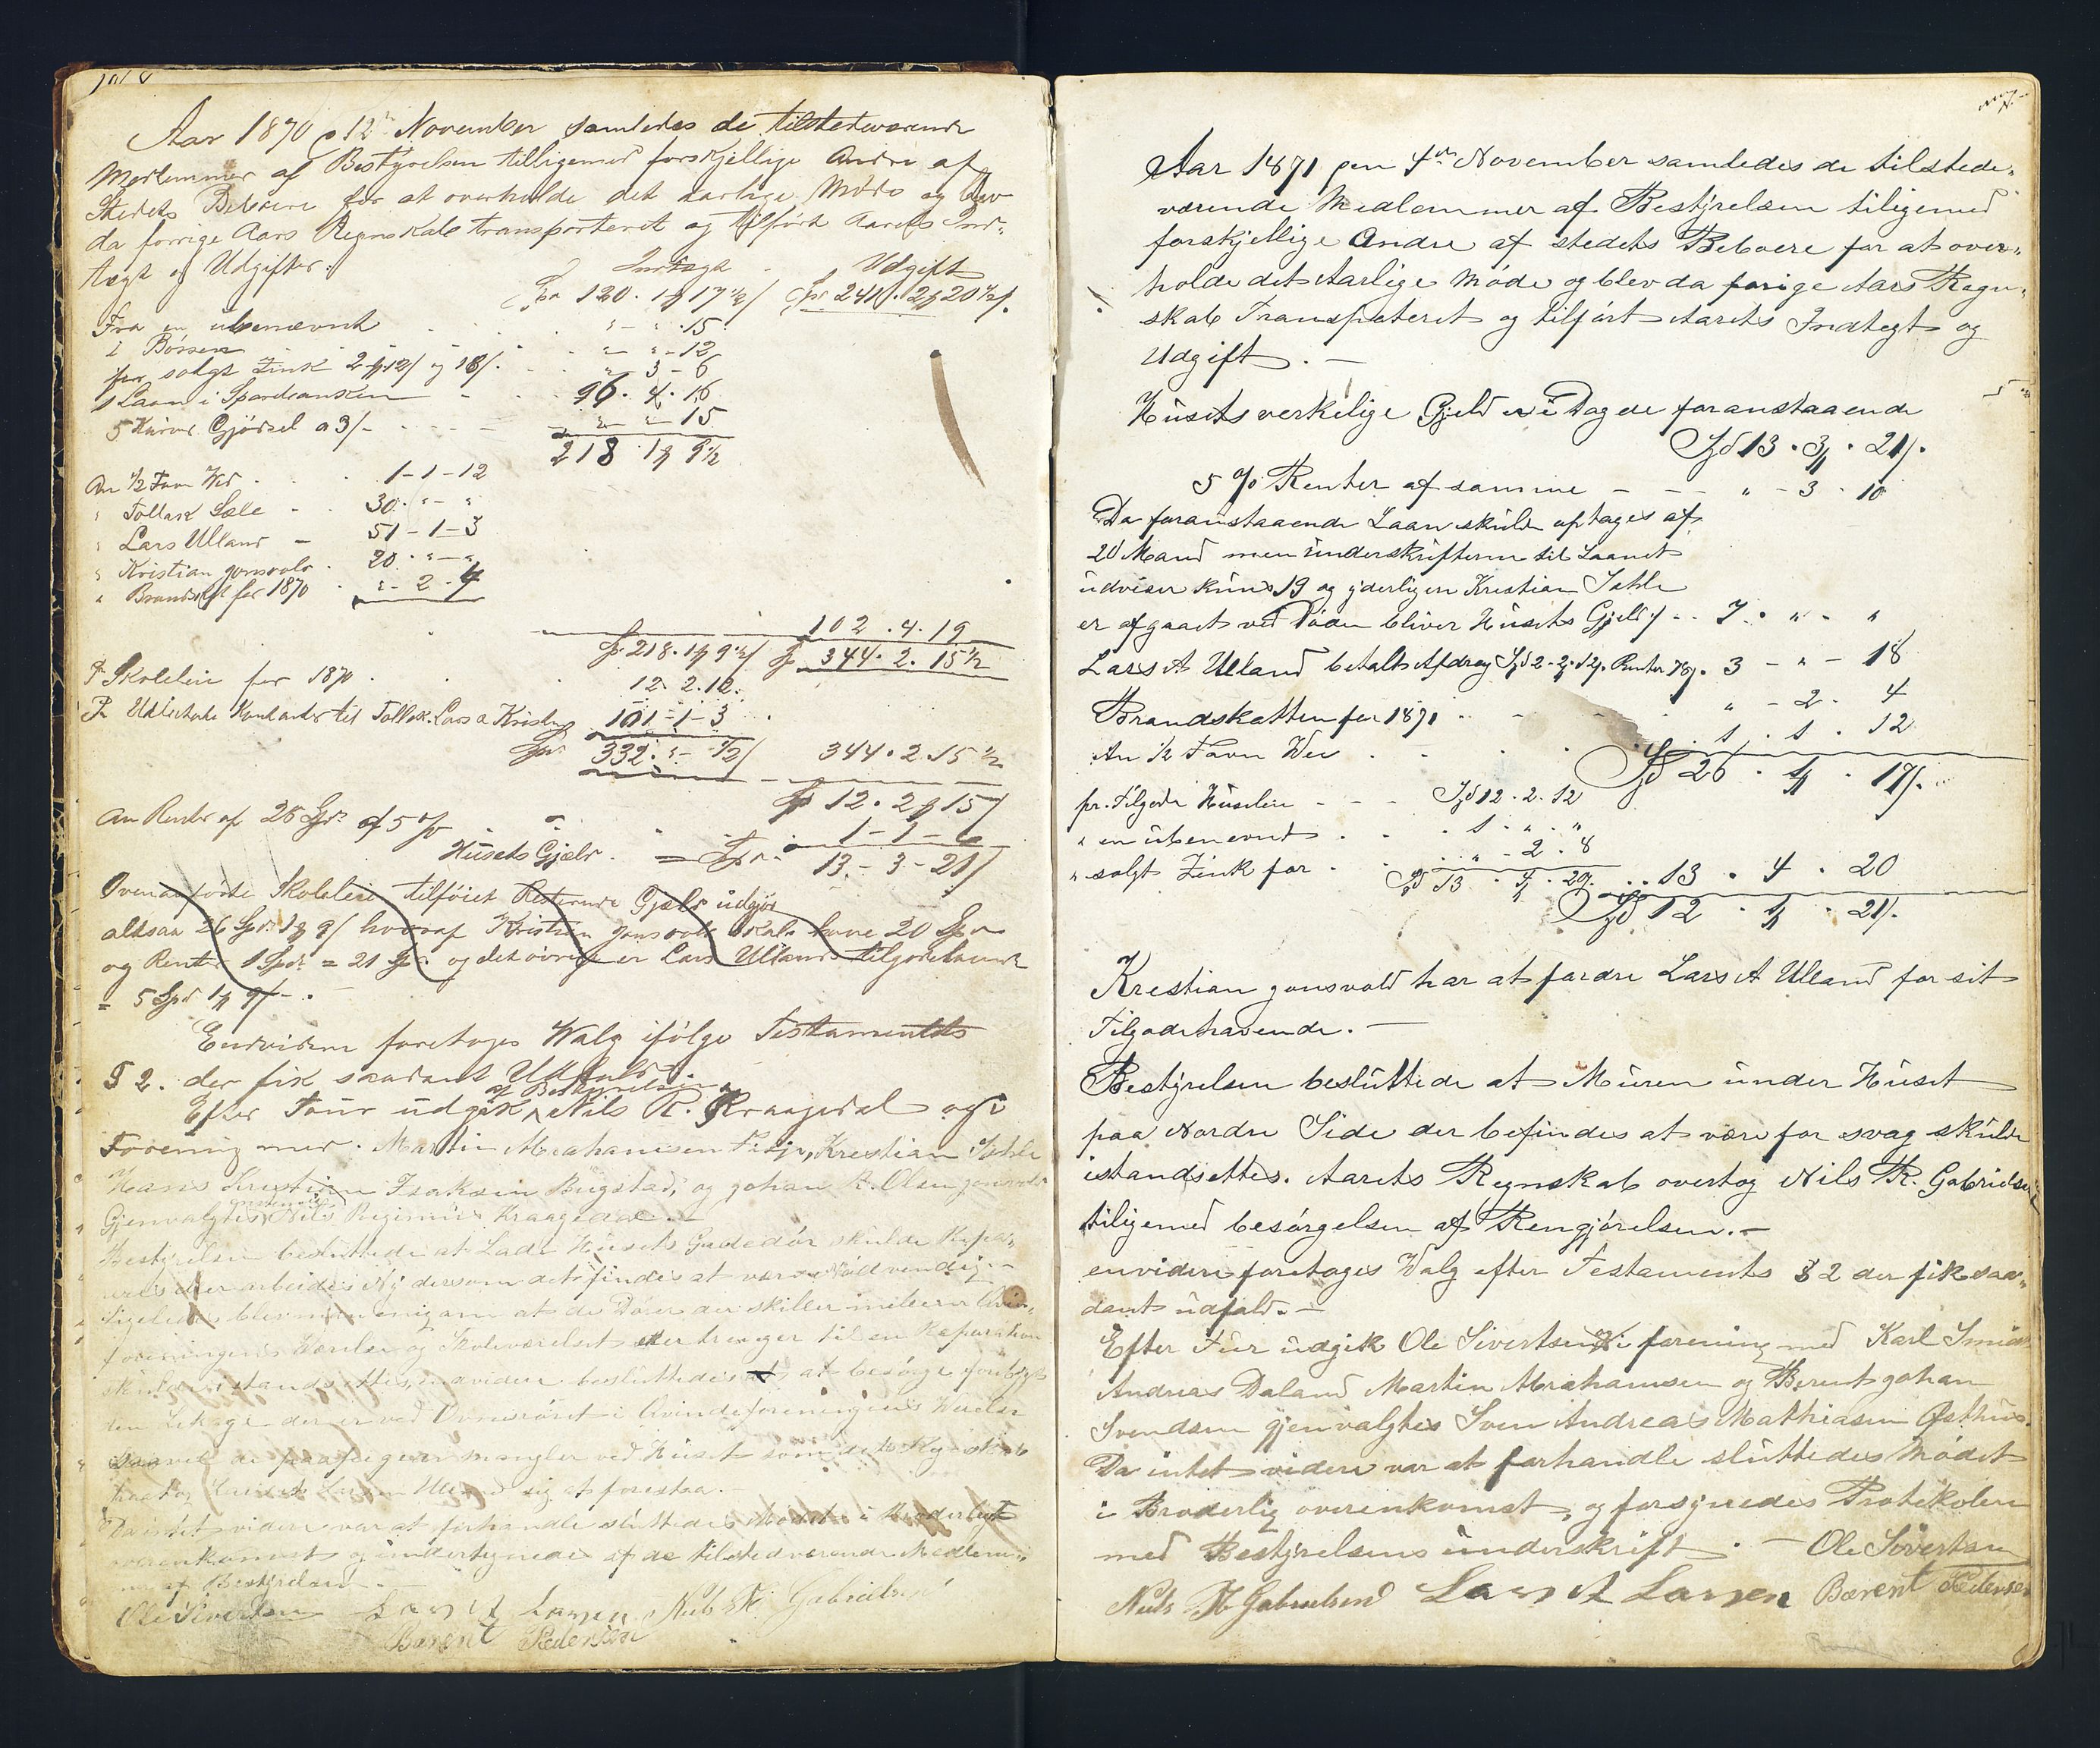 Aar 1870 12te November samledes de tilstedeværende
Medlemmer af Bestyrelsen tilligemed forskjellige Andre af
Stedets Beboere for at overholde det aarlige Møde og blev
da forrige Aars Regnskab transporteret og tilført Aarets Ind-
tægt og Udgifter.
Indtægt Udgift
Spd 120. 1 # 17 ½ / Spd 241. 2 # 20 ½ /.
Fra en ubenævnt " - " . 15
i Bøssen " - " - 12
for solgt Zink 2 # 12/ og 18/. " - 3 - 6
Laan i Sparebanken 96. 4. 16
5 Kurve Gjødsel a 3/- " - " - 15
218. 1 # 9 ½
An ½ Favn Ved 1 - 1 - 12
" Tollak Sæle 30. " - "
" Lars Ulland 51 - 1 - 3
" Kristian Jonsvold 20. " - "
" Brandskat for 1870 " - 2 - 4
102. 4. 19
218. 1 # 9 ½ / 344. 2. 15 ½
Pr Skoleleie for 1870 12. 2. 12.
Pr Udlaante Kontanter til Tollak. Lars a Krist. 101 - 1 - 3
Spd 332. " - ½ / 344. 2. 15 ½
Spd 12. 2 # 15 /
An Renter af 26 Spd af 5 % 1 - 1 - 6
Husets Gjæld = Spd 13. - 3 - 21 /
Ovenanførte Skoleleie tilføiet Resterende Gjæld udgjør
altsaa 26 Spd 1 # 9 / hvoraf Kristian Jonsvold skal have 20 Spd
og Renter 1 Spd = 21 Spd og det øvrige er Lars Ullands tilgodehavende
= 5 Spd 1 # 9/ - .
Endvidere foretoges Walg ifølge Testamentets
§ 2. der fik saadant Udfald.
af Bestyrelsen
Efter Tour udgik Nils R. Kraagedal og i
Forening med. Martin Abrahamsen, Krestian Sæhle
Hans Kristian Isaksen Bugstad, og Johan R. Olsen Jonsvold
Gjenvalgtes Nils Reginius Kraagedal. -
Bestyrelsen besluttede at Lade Husets Gadedør skulde Repa-
reres eller arbeides Ny dersom det findes at være Nødvendig. -
Ligeledes blev man enig om at de Døre der skiller imellem Qvin-
foreningens Værelse og Skoleværelset der trenger til en Reparation
skulde istandsættes, envidere besluttedes at besørge forebygt
den Lekage der er ved Ovnsrøret i Qvindeforeningens Værelse
Da intet videre var at forhandle sluttedes Mødet i Broderlig
overenkomst og undertegnedes af de tilstedværende Medlem-
mer af Bestyrelsen. -
Ole Sivertsen Lars A Larsen Nils R. Gabrielsen
Barent Pedersen
Aar 1871 den 4de November samledes de tilstede-
værende Medlemmer af Bestyrelsen tiligemed
forskjellige Andre af stedets Beboere for at over-
holde det Aarlige Møde og blev da forige Aars Regn-
skab Transpoteret og tilført Aarets Indtegt og
Udgift. -
Husets verkelige Gjeld er i Dag de foranstaaende
Spd 13. 3 #. 21/.
5 % Renter af samme - - - " - 3 - 10
Da foranstaaende Laan skulde optages af
20 Mand men underskrifterne til Laanet
udviser kuns 19 og yderligere Krestian Sæhle
er afgaaet ved Døden bliver Husets Gjeld 7. " . "
Lars A Ulland betalt Afdrag Spd 2 - 2 - 12/. Renter 78/. 3 - " - 18
Brandskatten for 1871 " - 2. 4
An ½ Favn Ved 1. 1. 12
Spd 26. 1 #. 17/.
pr. Tilgode Husleie - - - Spd 12. 2. 12
" en ubenevnt 1. " . "
" solgt Zink for " - 2. 8
Spd 13. 4. 20. 13. 4. 20
Spd 12. 1 #. 21/.
Krestian Jonsvold har at fordre Lars A Ulland for sit
Tilgodehavende. -
Bestyrelsen besluttede at Muren under Huset
paa Nordre Side der befindes at være for svag skulde
istandsettes. Aarets Regnskab overtog Nils R. Gabrielsen
tiligemed besørgelsen af Rengjørelsen. -
envidere foretoges Valg efter Testaments § 2 der fik saa-
dant udfald. -
Efter Tur udgik Ole Sivertsen i forening med Karl Smid
Andreas Daland Martin Abrahamsen og Berent Johan
Svendsen gjenvalgtes Sven Andreas Mathiasen Østhus.
Da intet videre var at forhandle sluttedes Mødet
i Broderlig overenkomst, og forsynedes Protokolen
med Bestyrelsens underskrift. - Ole Sivertsen
Nils R Gabrielsen Lars A Larsen Barent Pedersen